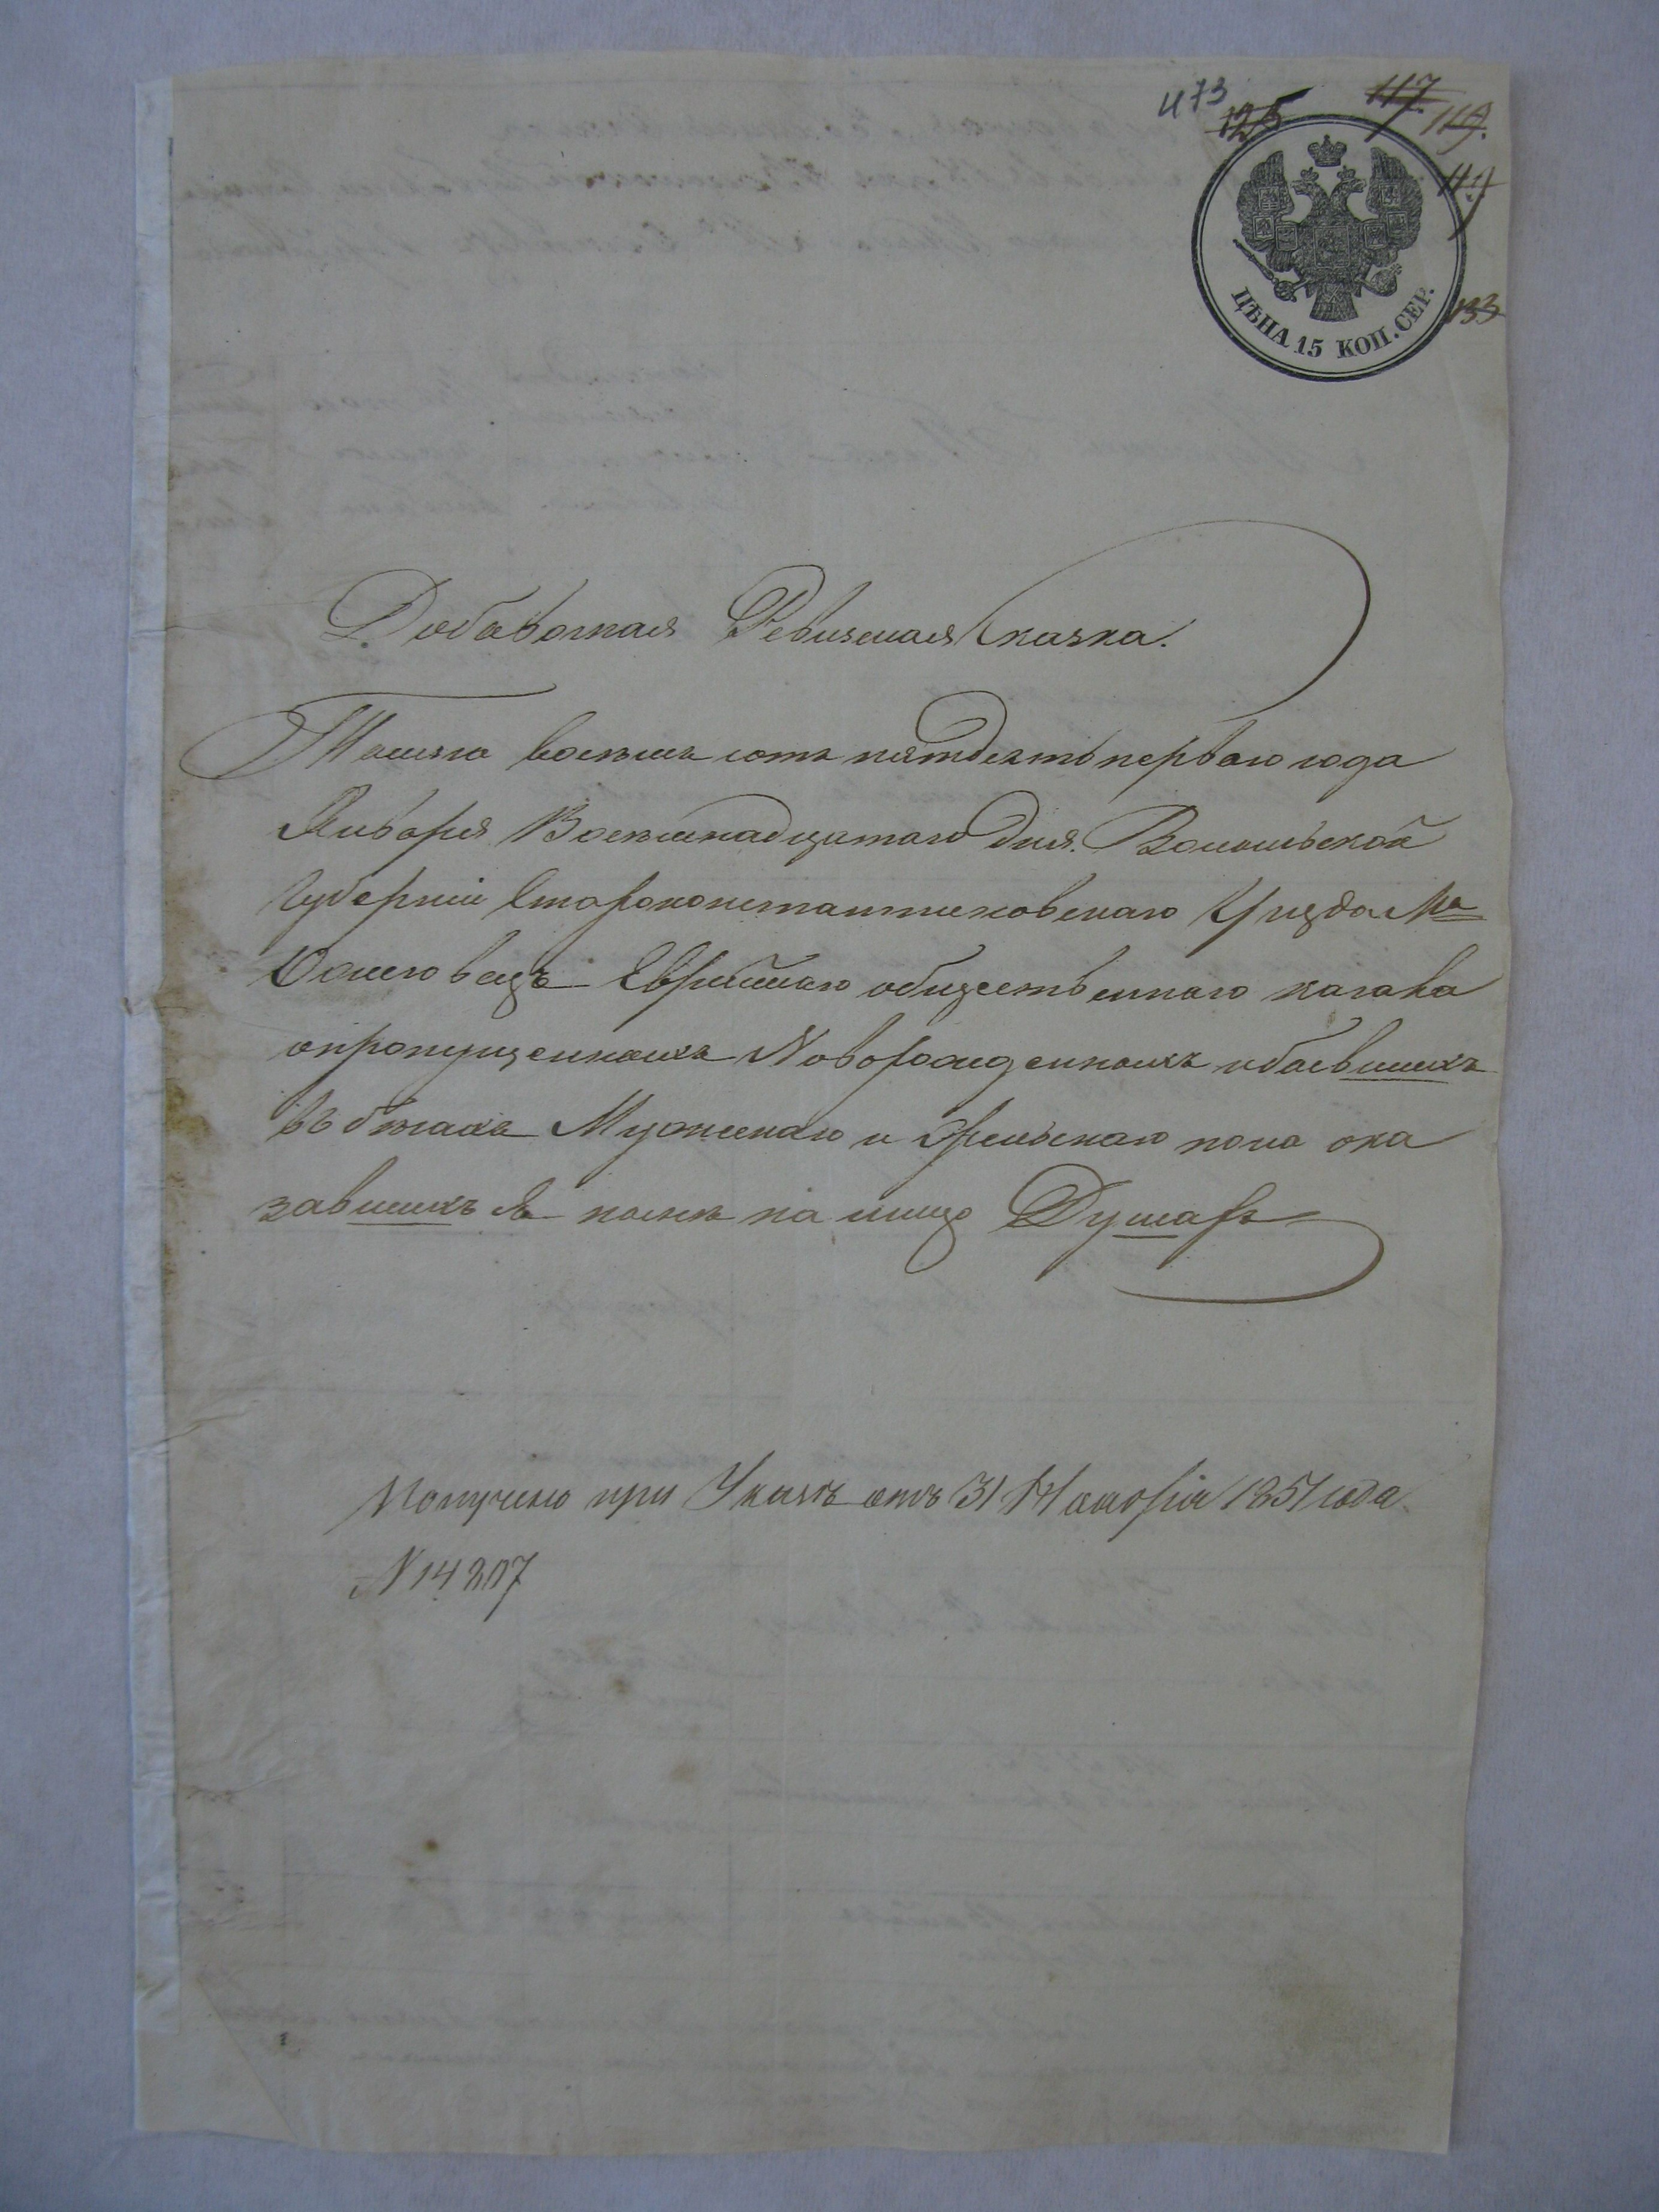 473
125
117.
119.
117
133
ЦѢНА 15 КОП. СЕР.
Добавочная Ревизская Сказка.
Тысяча восемь сотъ пятдесятъ перваго года
Января Восемнадцатаго Дня. Волынской
Губерніи Староконстантиновскаго Уизда Мка
Еврейскаго общественнаго кагала
опропущенныхъ Новорожденныхъ ибывшихъ
Мужескаго и Женскаго пола ока
завшихъ на лицо Душахъ
Получено при Указѣ отъ 31 1851 года
N 14207